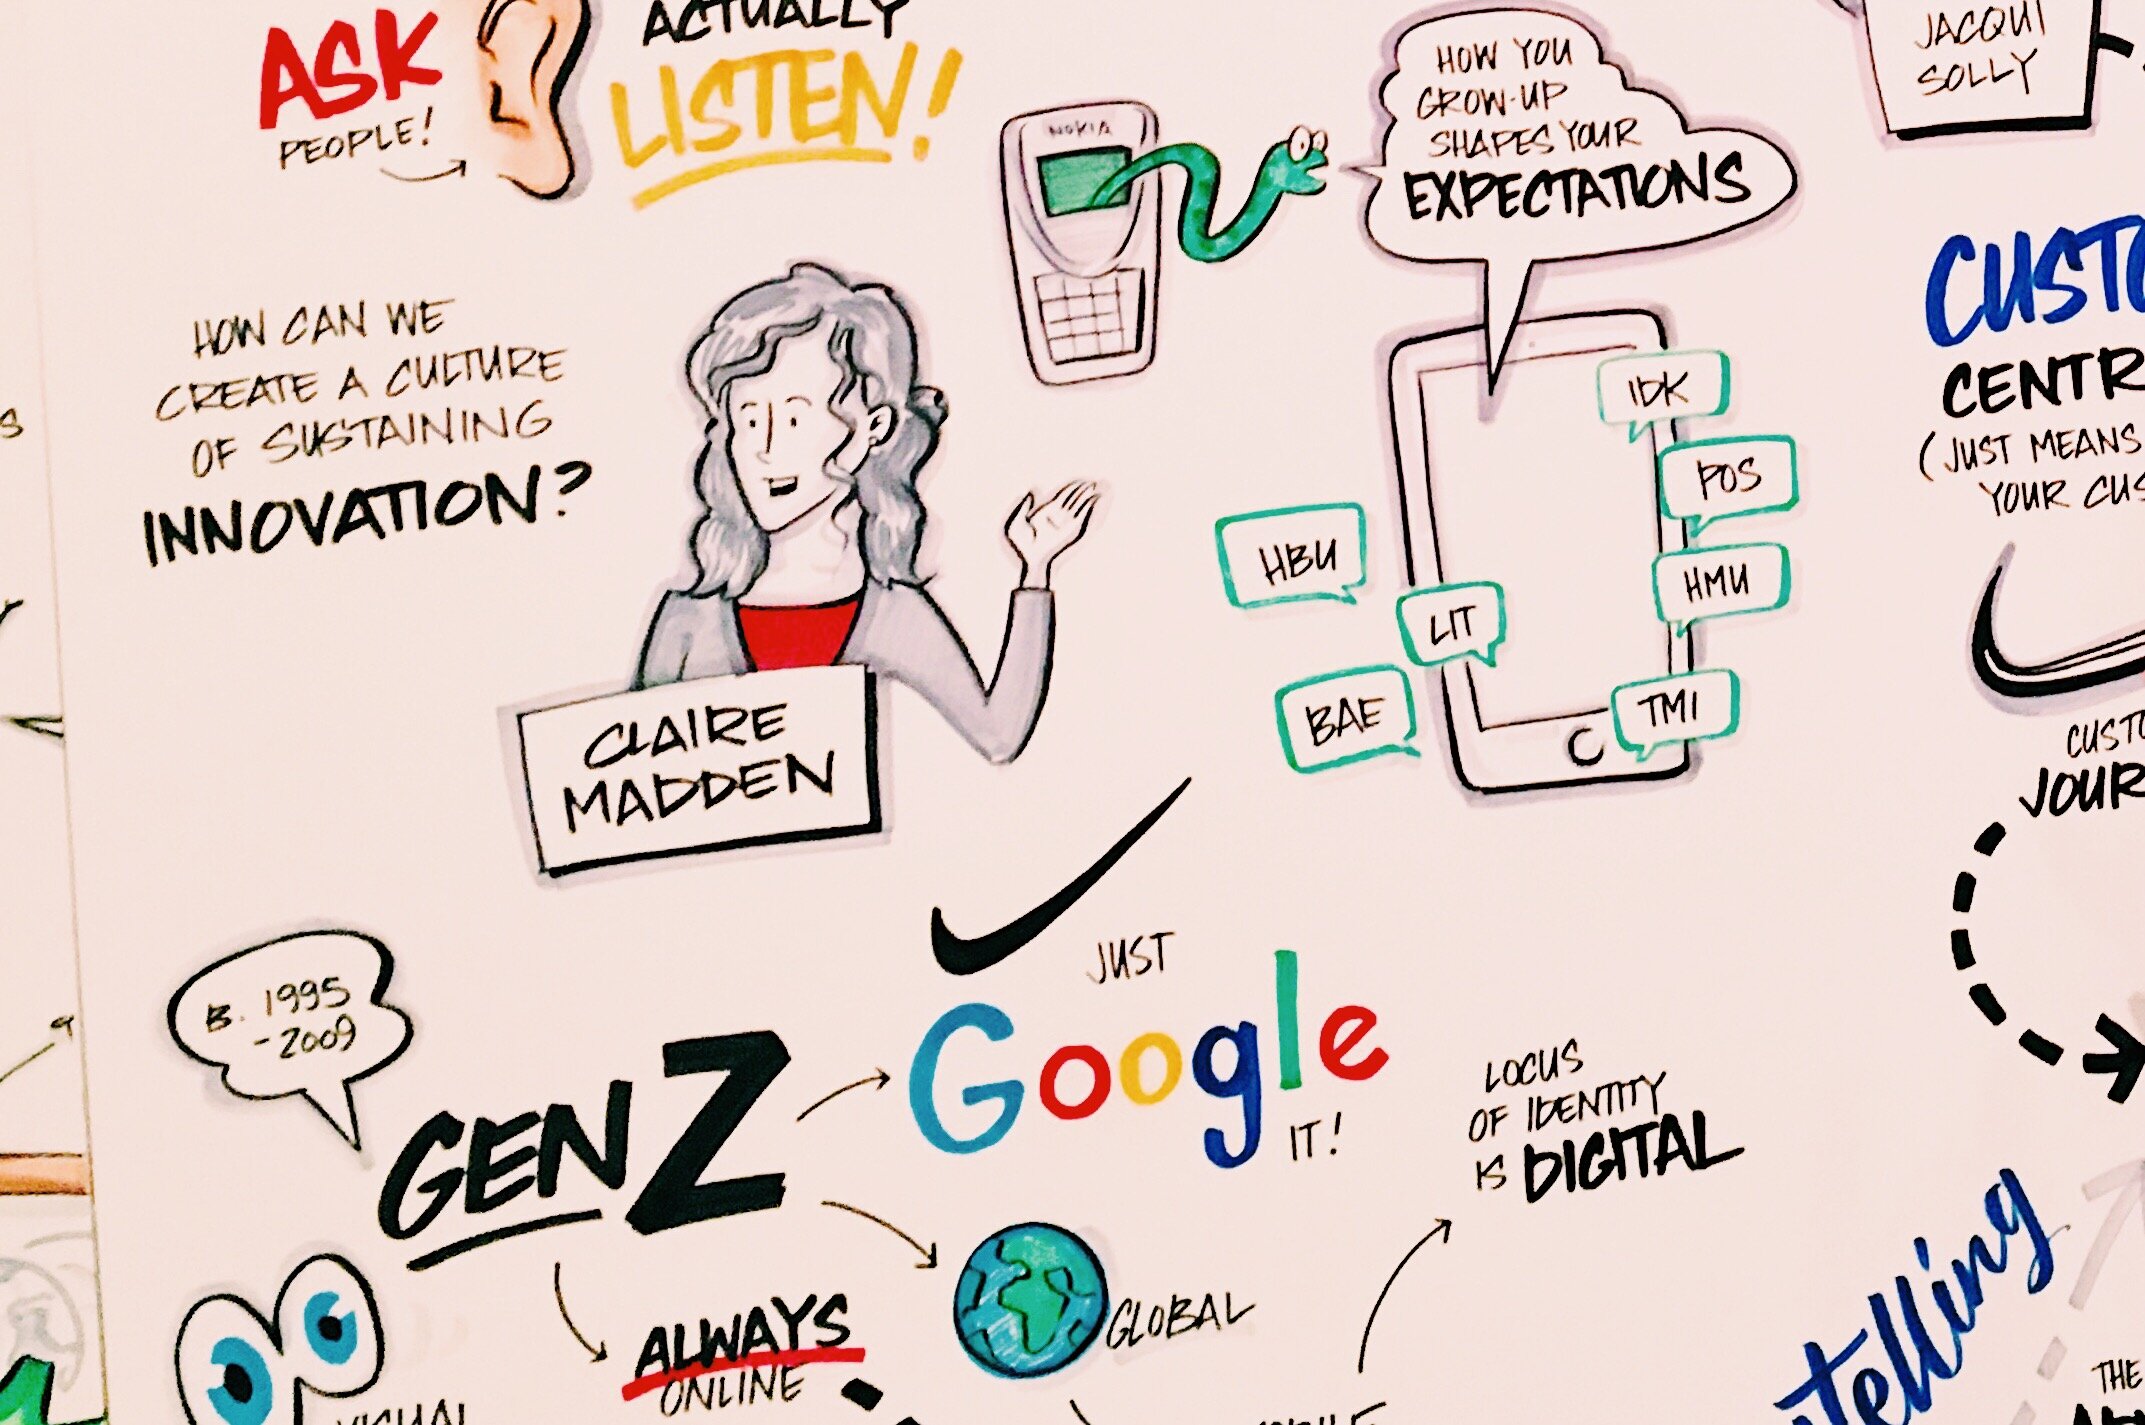 ASK
PEOPLE!
ACTUALLY
LISTEN!
NOKIA
HOW YOU
GROW-UP
SHAPES YOUR
EXPECTATIONS
JACQUI
SOLLY
HOW CAN WE
CREATE A CULTURE
OF SUSTAINING
INNOVATION?
CLAIRE
MADDEN
IDK
POS
HBU
HMU
LIT
BAE
TMI
CENTR
(JUST MEANS
YOUR CUS
B. 1995
-2009
GEN Z
JUST
Google
IT!
LOCUS
OF IDENTITY
IS DIGITAL
GLOBAL
ALWAYS
ONLINE
VISUAL
THE